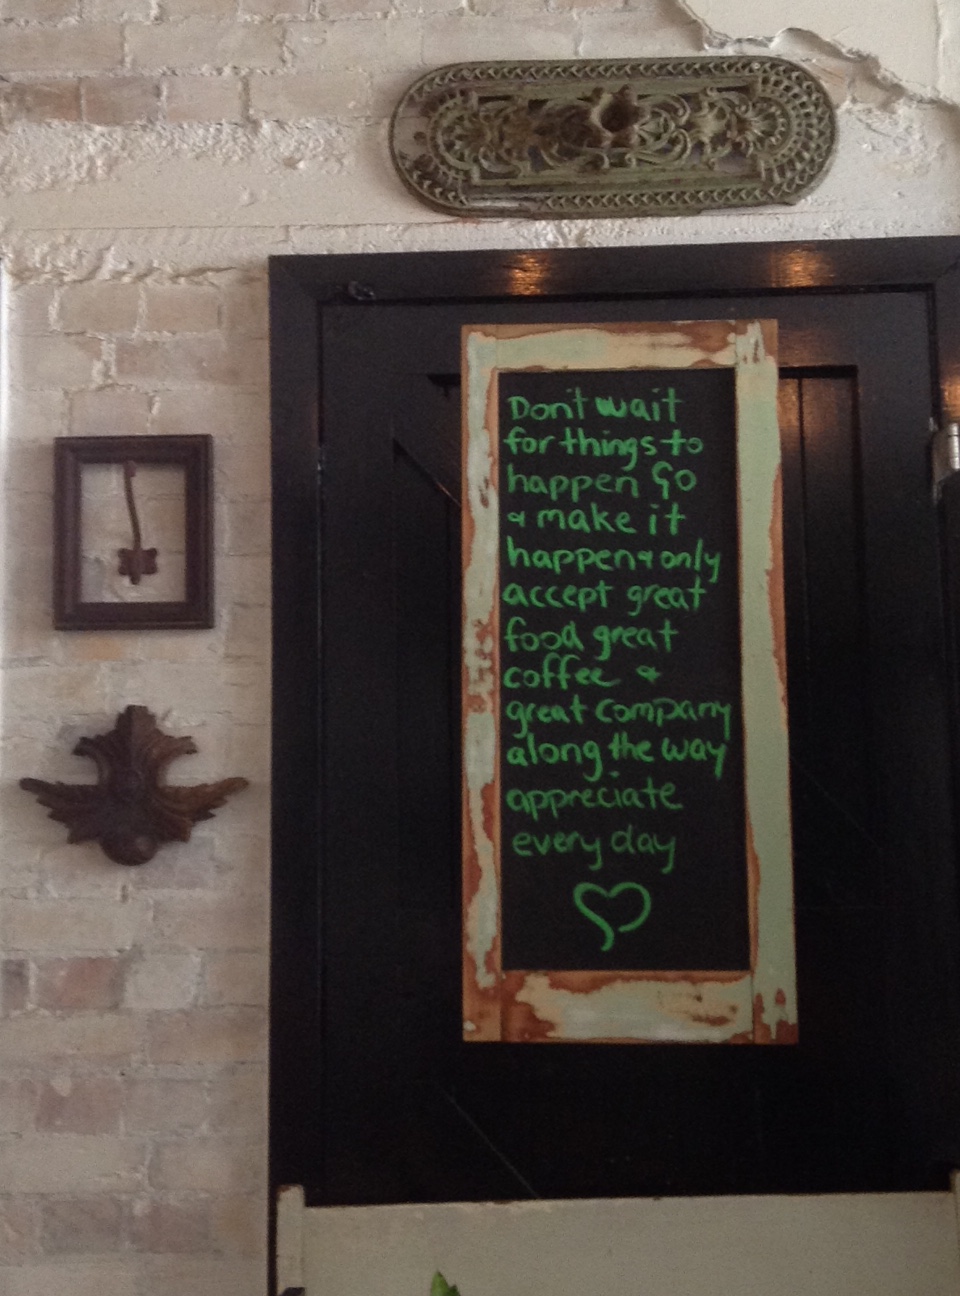 Don't wait
for things to
happen Go
& make it
happen & only
accept great
food great
coffee &
great company
along the way
appreciate
every day